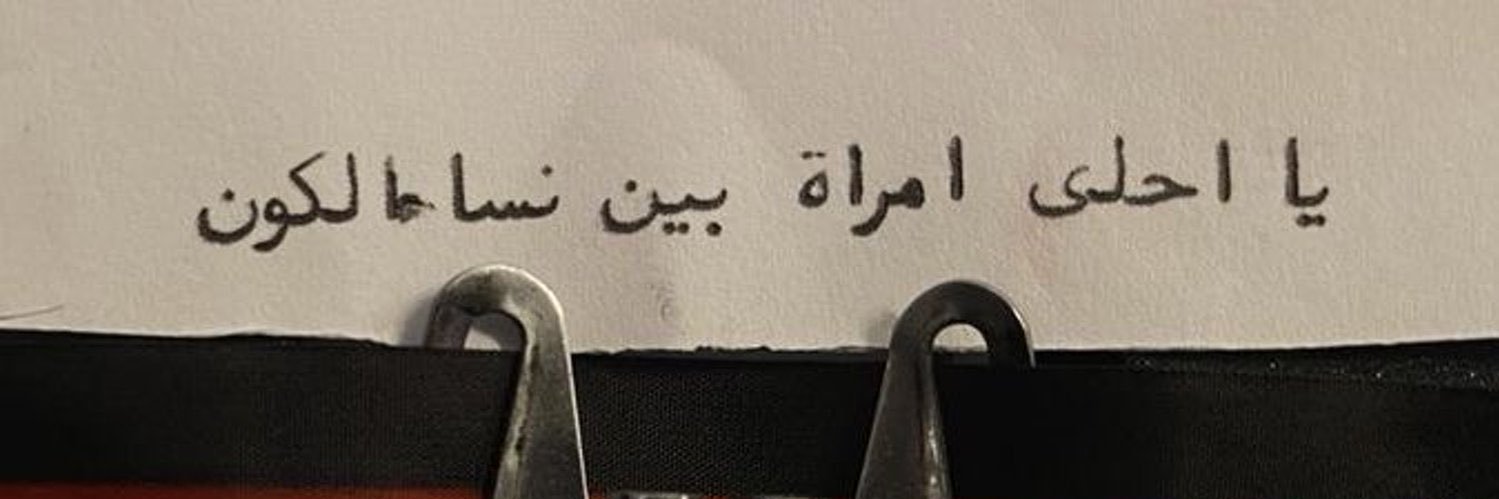 يا احلى امراة بين نساء الكون